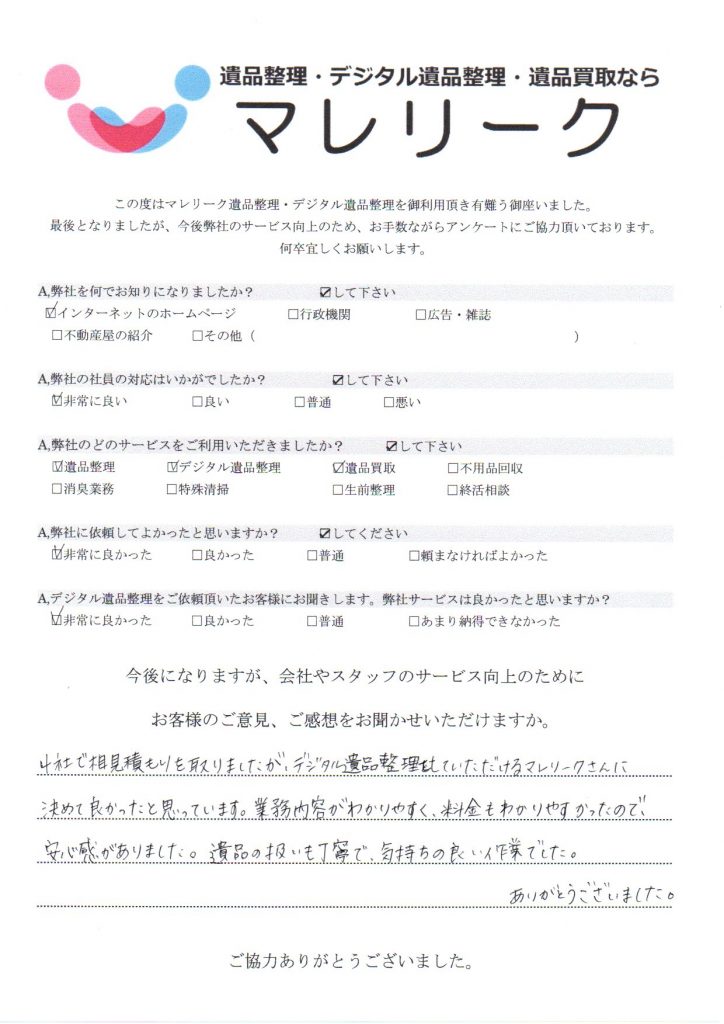 遺品整理・デジタル遺品整理・遺品買取なら
マレリーク
この度はマレリーク遺品整理・デジタル遺品整理を御利用頂き有難う御座いました。
最後となりましたが、今後弊社のサービス向上のため、お手数ながらアンケートにご協力頂いております。
何卒宜しくお願いします。
A,弊社を何でお知りになりましたか？ ☑して下さい
☑インターネットのホームページ □行政機関 □広告・雑誌
□不動産屋の紹介 □その他（ ）
A,弊社の社員の対応はいかがでしたか？ ☑して下さい
☑非常に良い □良い □普通 □悪い
A,弊社のどのサービスをご利用いただきましたか？ ☑して下さい
☑遺品整理 ☑デジタル遺品整理 ☑遺品買取 □不用品回収
□消臭業務 □特殊清掃 □生前整理 □終活相談
A,弊社に依頼してよかったと思いますか？ ☑してください
☑非常に良かった □良かった □普通 □頼まなければよかった
A,デジタル遺品整理をご依頼頂いたお客様にお聞きします。弊社サービスは良かったと思いますか？
☑非常に良かった □良かった □普通 □あまり納得できなかった
今後になりますが、会社やスタッフのサービス向上のために
お客様のご意見、ご感想をお聞かせいただけますか。
4社で相見積もりを取りましたが、デジタル遺品整理していただけるマレリークさんに
決めて良かったと思っています。業務内容がわかりやすく、料金もわかりやすかったので、
安心感がありました。遺品の扱いも丁寧で、気持ちの良い作業でした。
ありがとうございました。
ご協力ありがとうございました。